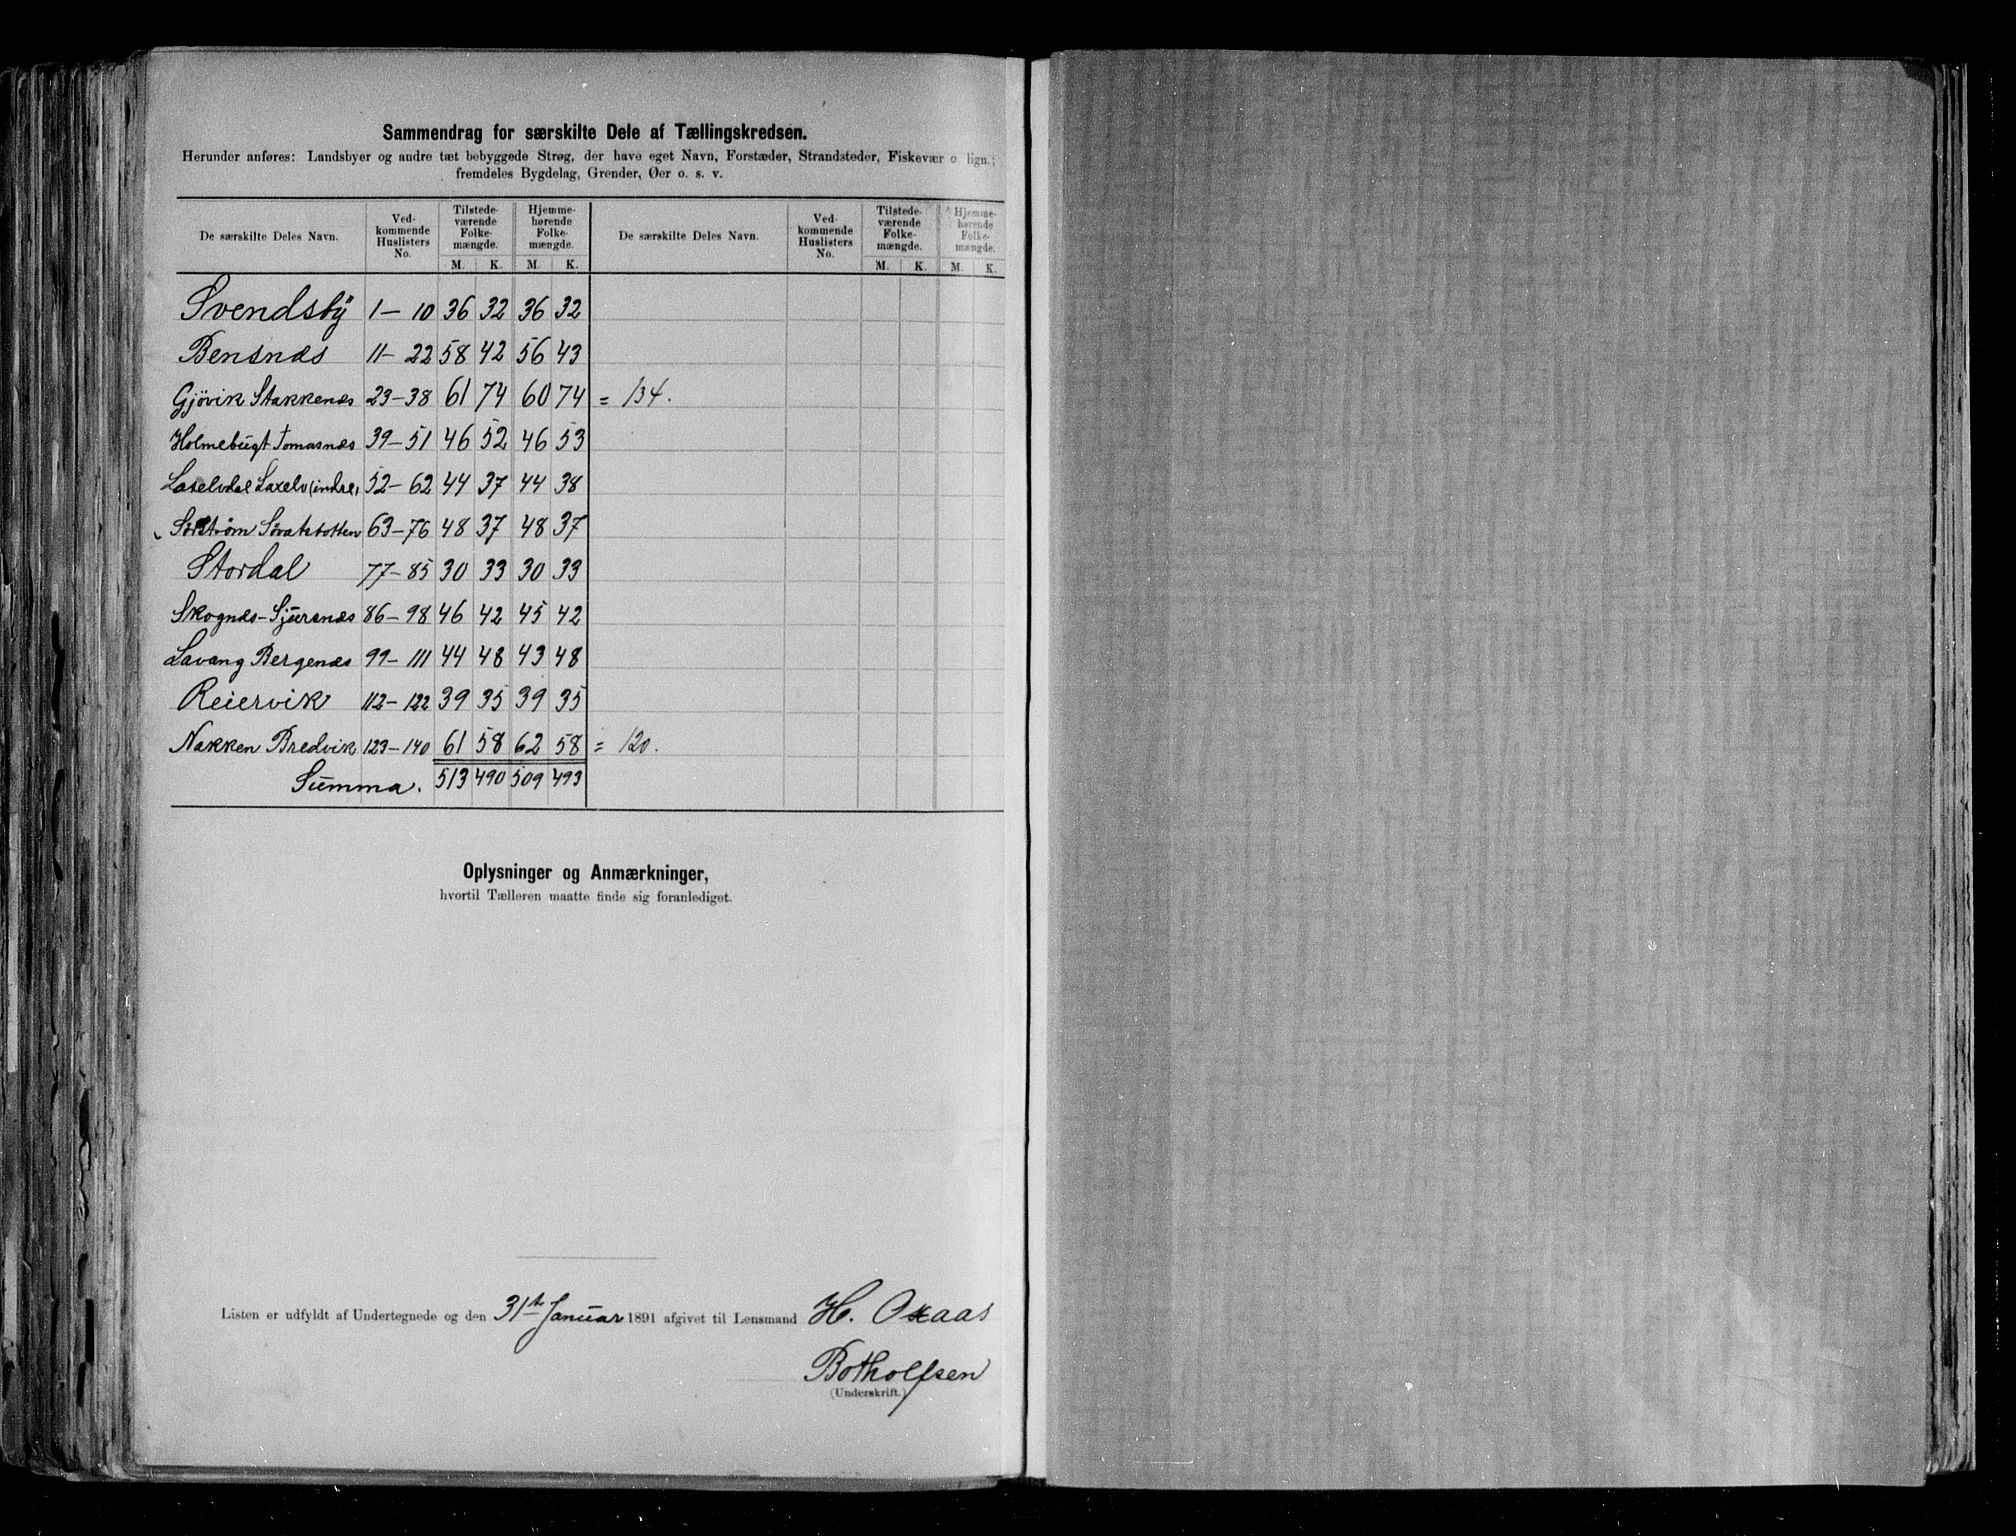 Sammendrag for særskilte Dele af Tællingskredsen.
Herunder anføres: Landsbyer og andre tæt bebyggede Strøg, der have eget Navn, Forstæder, Strandsteder, Fiskevær o. lign.;
fremdeles Bygdelag, Grender, Øer o. s. v.
De særskilte Deles Navn. Ved-kommende Huslisters No. Tilstede-værende Folke-mængde. Hjemme-hørende Folke-mængde. De særskilte Deles Navn. Ved-kommende Huslisters No. Tilstede-værende Folke-mængde. Hjemme-hørende Folke-mængde.
M. K. M. K. M. K. M. K.
Svendsby 1-10 36 32 36 32
Bensnæs 11-22 58 42 56 43
Gjövik Stakkenæs 23-38 61 74 60 74 = 134.
Holmebugt Tomasnæs 39-51 46 52 46 53
Laxelvdal Laxelv (indre) 52-62 44 37 44 38
Sørstrøm 63-76 48 37 48 37
Stordal 77-85 30 33 30 33
Skognæs-Sjursnæs 86-98 46 42 45 42
Lavang Bergenæs 99-111 44 48 43 48
Reiervik 112-122 39 35 39 35
Nakken Bredvik 123-140 61 58 62 58 = 120.
Summa. 513 490 509 493
Oplysninger og Anmærkninger,
hvortil Tælleren maatte finde sig foranlediget.
Listen er udfyldt af Undertegnede og den 31te Januar 1891 afgivet til Lensmand H. Oxaas
Botholfsen
(Underskrift.)